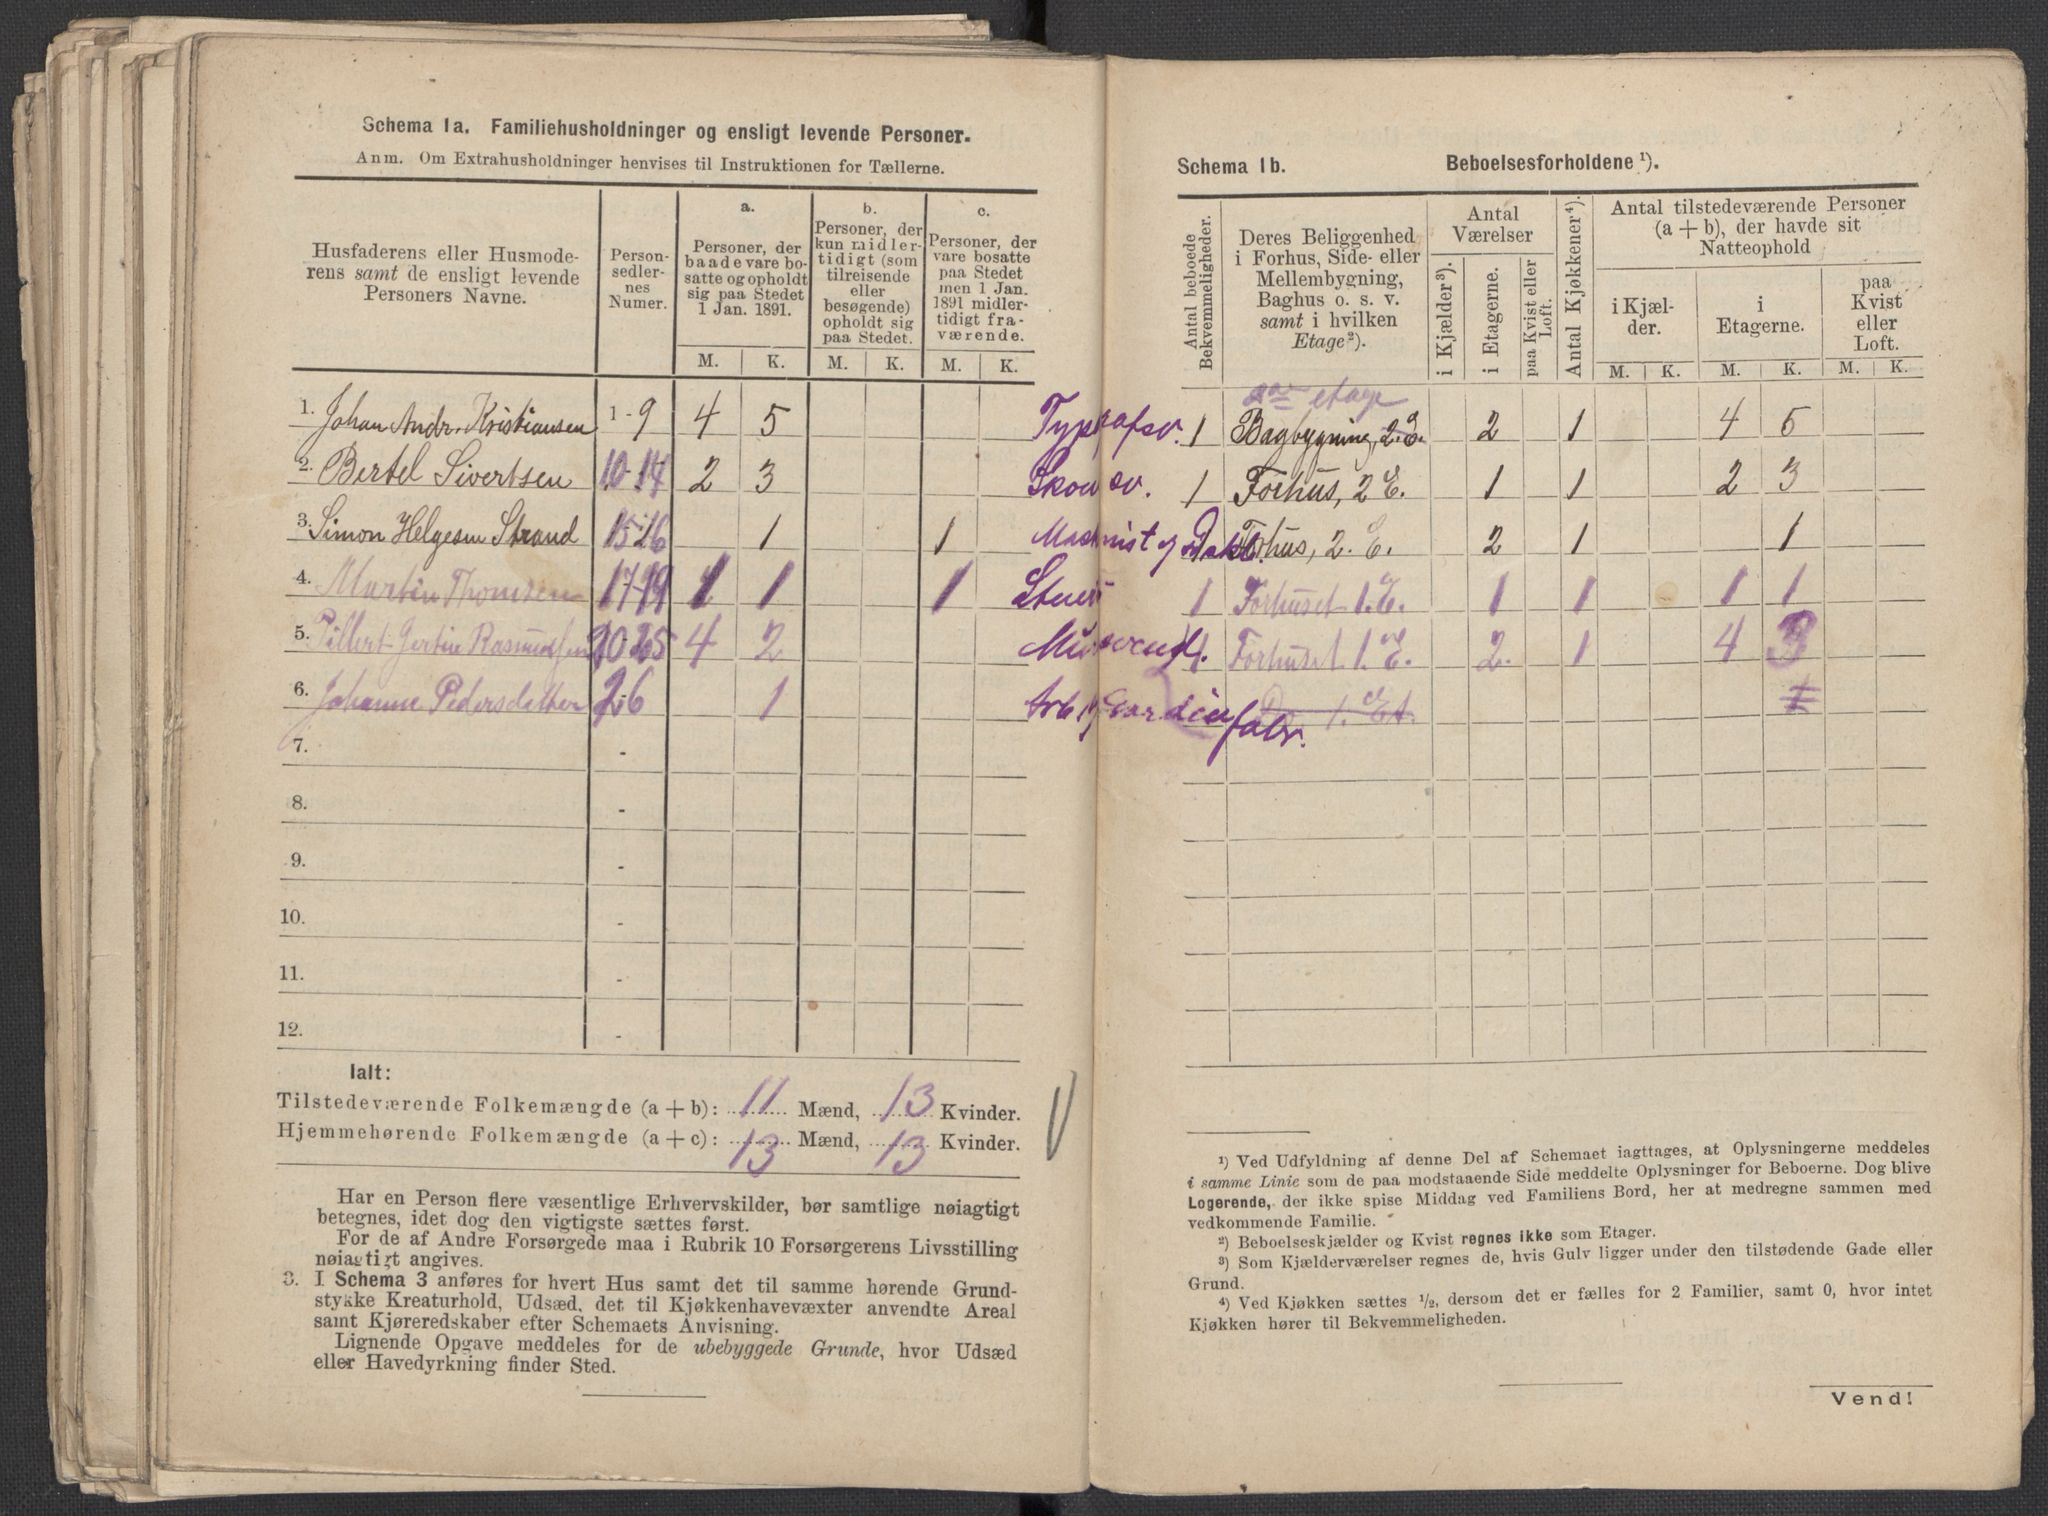 Schema 1a. Familiehusholdninger og ensligt levende Personer.
Anm. Om Extrahusholdninger henvises til Instruktionen for Tællerne.
Husfaderens eller Husmoderens samt de ensligt levende Personers Navne.
Personsedlernes Numer.
a. Personer, der baade vare bosatte og opholdt sig paa Stedet 1 Jan. 1891.
b. Personer, der kun midlertidigt (som tilreisende eller besøgende) opholdt sig paa Stedet.
c. Personer, der vare bosatte paa Stedet men 1 Jan. 1891 midlertidigt fraværende.
M. K. M. K. M. K.
1. Johan Andr. Kristiansen 1-9 4 5
2. Bertel Sivertsen 10-14 2 3
3. Simon Helgesen Strand 15-16 1 1
4. Martin Thomsen 17-19 1 1 1
5. Rasmussen 20-25 4 2
6. Johanne Pedersdatter 26 1
7. -
8. -
9. -
10. -
11. -
12. -
Ialt:
Tilstedeværende Folkemængde (a+b): 11 Mænd, 13 Kvinder.
Hjemmehørende Folkemængde (a+c): 13 Mænd, 13 Kvinder.
Har en Person flere væsentlige Erhvervskilder, bør samtlige nøiagtigt
betegnes, idet dog den vigtigste sættes først.
For de af Andre Forsørgede maa i Rubrik 10 Forsørgerens Livsstilling
nøiagtigt angives.
3. I Schema 3 anføres for hvert Hus samt det til samme hørende Grund-
stykke Kreaturhold, Udsæd, det til Kjøkkenhavevæxter anvendte Areal
samt Kjøreredskaber efter Schemaets Anvisning.
Lignende Opgave meddeles for de ubebyggede Grunde, hvor Udsæd
eller Havedyrkning finder Sted.
Schema 1b. Beboelsesforholdene ¹).
Antal beboede Bekvemmeligheder.
Deres Beliggenhed i Forhus, Side- eller Mellembygning, Baghus o. s. v. samt i hvilken Etage ²).
Antal Værelser
i Kjælder ³).
i Etagerne.
paa Kvist eller Loft.
Antal Kjøkkener ⁴).
Antal tilstedeværende Personer (a+b), der havde sit Natteophold
i Kjælder.
i Etagerne.
paa Kvist eller Loft.
M. K. M. K. M. K.
etage
1 Bagbygning, 2. E. 2 1 4 5
1 Forhus, 2 E. 1 1 2 3
Forhus, 2. E. 2 1 1
1 Forhuset 1. E. 1 1 1 1
1 Forhuset 1. E. 2. 1 4 3
Do 1. Et. 1
fabr.
¹) Ved Udfyldning af denne Del af Schemaet iagttages, at Oplysningerne meddeles
i samme Linie som de paa modstaaende Side meddelte Oplysninger for Beboerne. Dog blive
Logerende, der ikke spise Middag ved Familiens Bord, her at medregne sammen med
vedkommende Familie.
²) Beboelseskjælder og Kvist regnes ikke som Etager.
³) Som Kjælderværelser regnes de, hvis Gulv ligger under den tilstødende Gade eller
Grund.
⁴) Ved Kjøkken sættes ½, dersom det er fælles for 2 Familier, samt 0, hvor intet
Kjøkken hører til Bekvemmeligheden.
Vend!